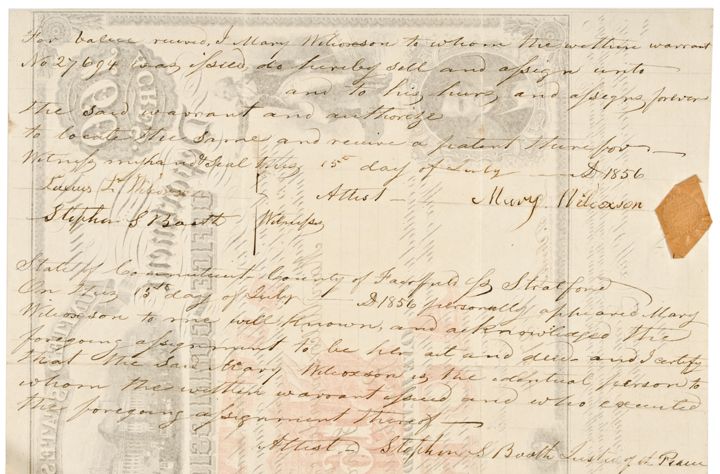 For value received, I Mary Wilcoxson to whom the within warrant
No 27694 was issued do hereby sell and assign unto
and to his heirs and assigns forever
the said warrant and authorize
to locate the same and receive a patent therefor
Witness my hand & Seal this 15th day of July AD 1856
Attest Mary Wilcoxson
Stephen S Booth Witness
State of Connecticut County of Fairfield ss Stratford
On this 15th day of July AD 1856 personally appeared Mary
Wilcoxson to me well known, and acknowledged the
foregoing assignment to be her act and deed and I certify
that the said Mary Wilcoxson is the identical person to
whom the within warrant issued and who executed
the foregoing assignment thereof
Attest Stephen S Booth Justice of the Peace